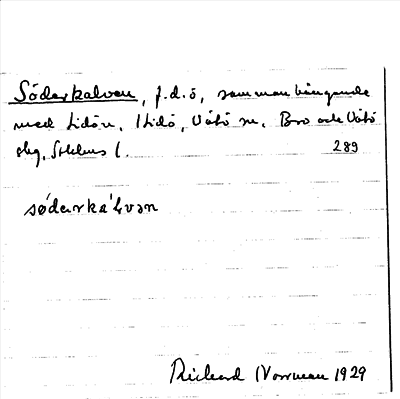 Söderkalven, f.d. ö, sammanhängande
med Lidön, Lidö, Vätö sn, Bro och Vätö
skg, Sthlms l. 289
södərka'lvən
Rickard Norrman 1929